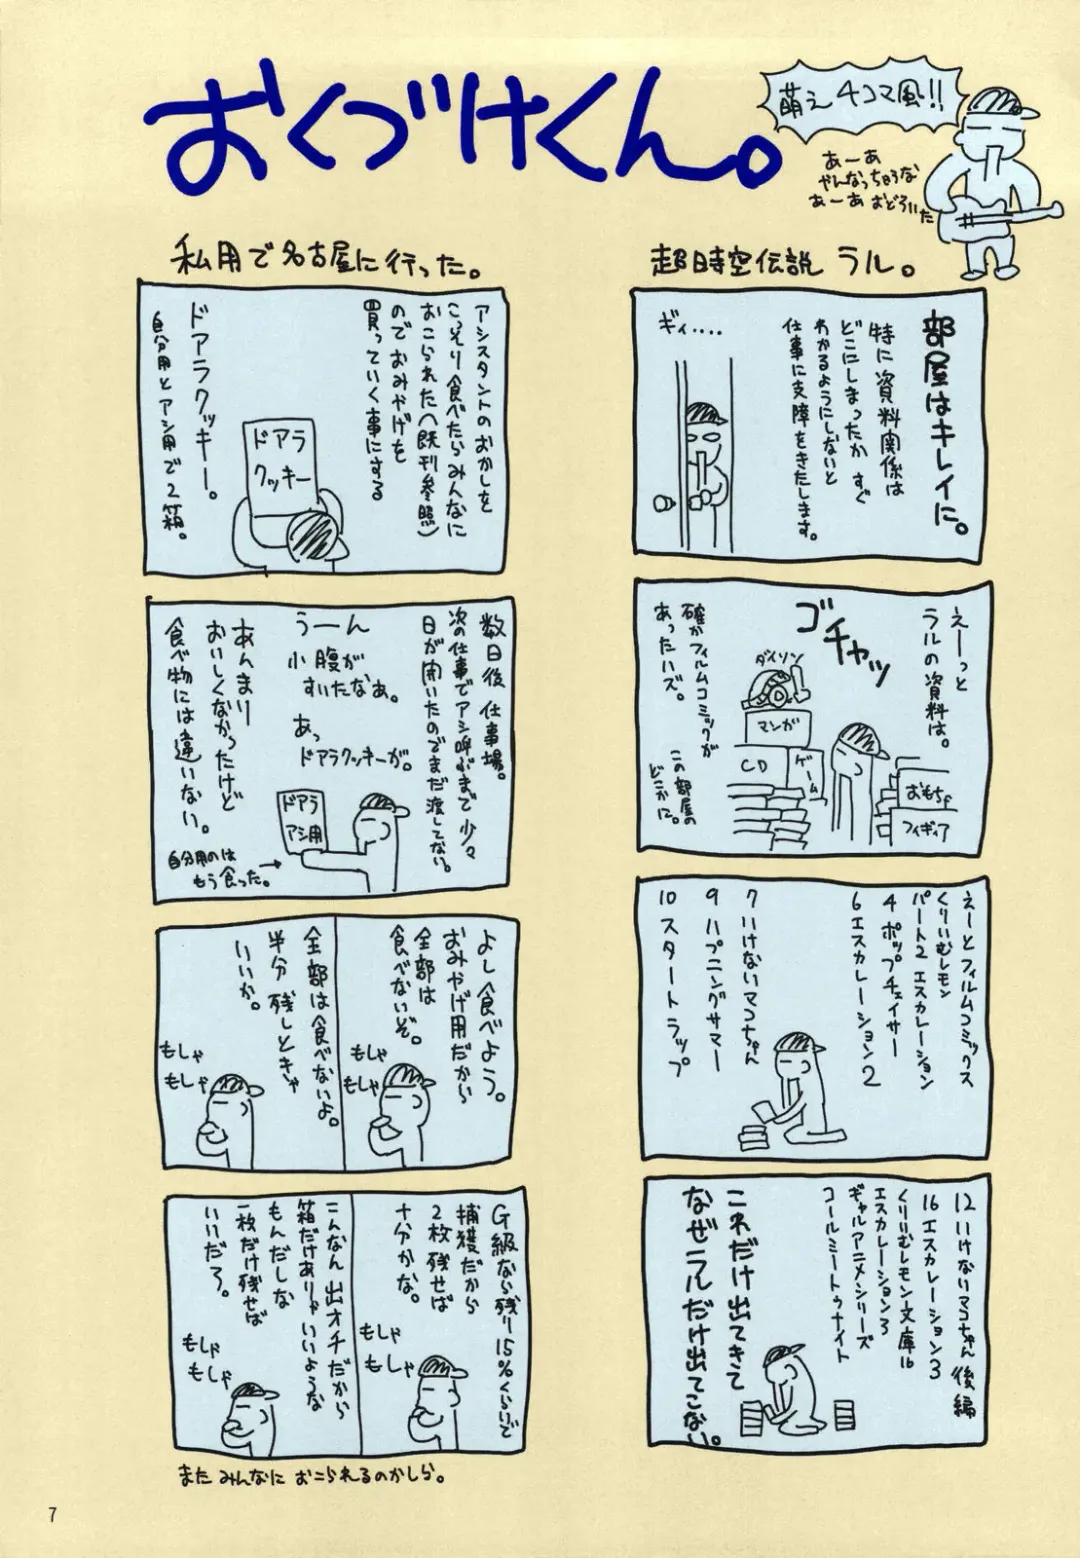 おくづけくん。
萌え4コマ風!!
あーあ
やんなっちゃうな
あーあ おどろいた
超時空伝説 ラル。
部屋はキレイに。
特に資料関係は
どこにしまったか すぐ
わかるようにしないと
仕事に支障をきたします。
ギィ....
えーっと
ラルの資料は。
ゴチャッ
ダイソン
マンガ
CD
ゲーム
おもちゃ
フィギィア
確かフィルムコミックが
あったハズ。
この部屋の
どこかに。
えーとフィルムコミックス
くりいむレモン
パート2 エスカレーション
4 ポップチェイサー
6 エスカレーション2
7 いけないマコちゃん
9 ハプニングサマー
10 スタートラップ
12 いけないマコちゃん 後編
16 エスカレーション3
くりいむレモン文庫16
エスカレーション3
ギャルアニメシリーズ
コールミートゥナイト
これだけ出てきて
なぜラルだけ出てこない。
私用で名古屋に行った。
アシスタントのおかしを
こっそり食べたらみんなに
おこられた(既刊参照)
ので おみやげを
買っていく事にする
ドアラ
クッキー
ドアラクッキー。
自分用とアシ用で2箱。
数日後 仕事場。
次の仕事でアシ呼ぶまで少々
日が開いたのでまだ渡してない。
うーん
小腹が
すいたなぁ。
あっ
ドアラクッキーが。
ドアラ
アシ用
あんまり
おいしくなかったけど
食べ物には違いない。
自分用のは
もう食った。→
よし食べよう。
おみやげ用だから
全部は
食べないぞ。
もしゃ
もしゃ
全部は食べないよ。
半分 残しときゃ
いいか。
もしゃ
もしゃ
G級なら残り15%くらいで
捕獲だから
2枚 残せば
十分かな。
もしゃ
もしゃ
こんなん 出オチだから
箱だけありゃいいような
もんだしな
一枚だけ残せば
いいだろ。
もしゃ
もしゃ
また みんなに おこられるのかしら。
7